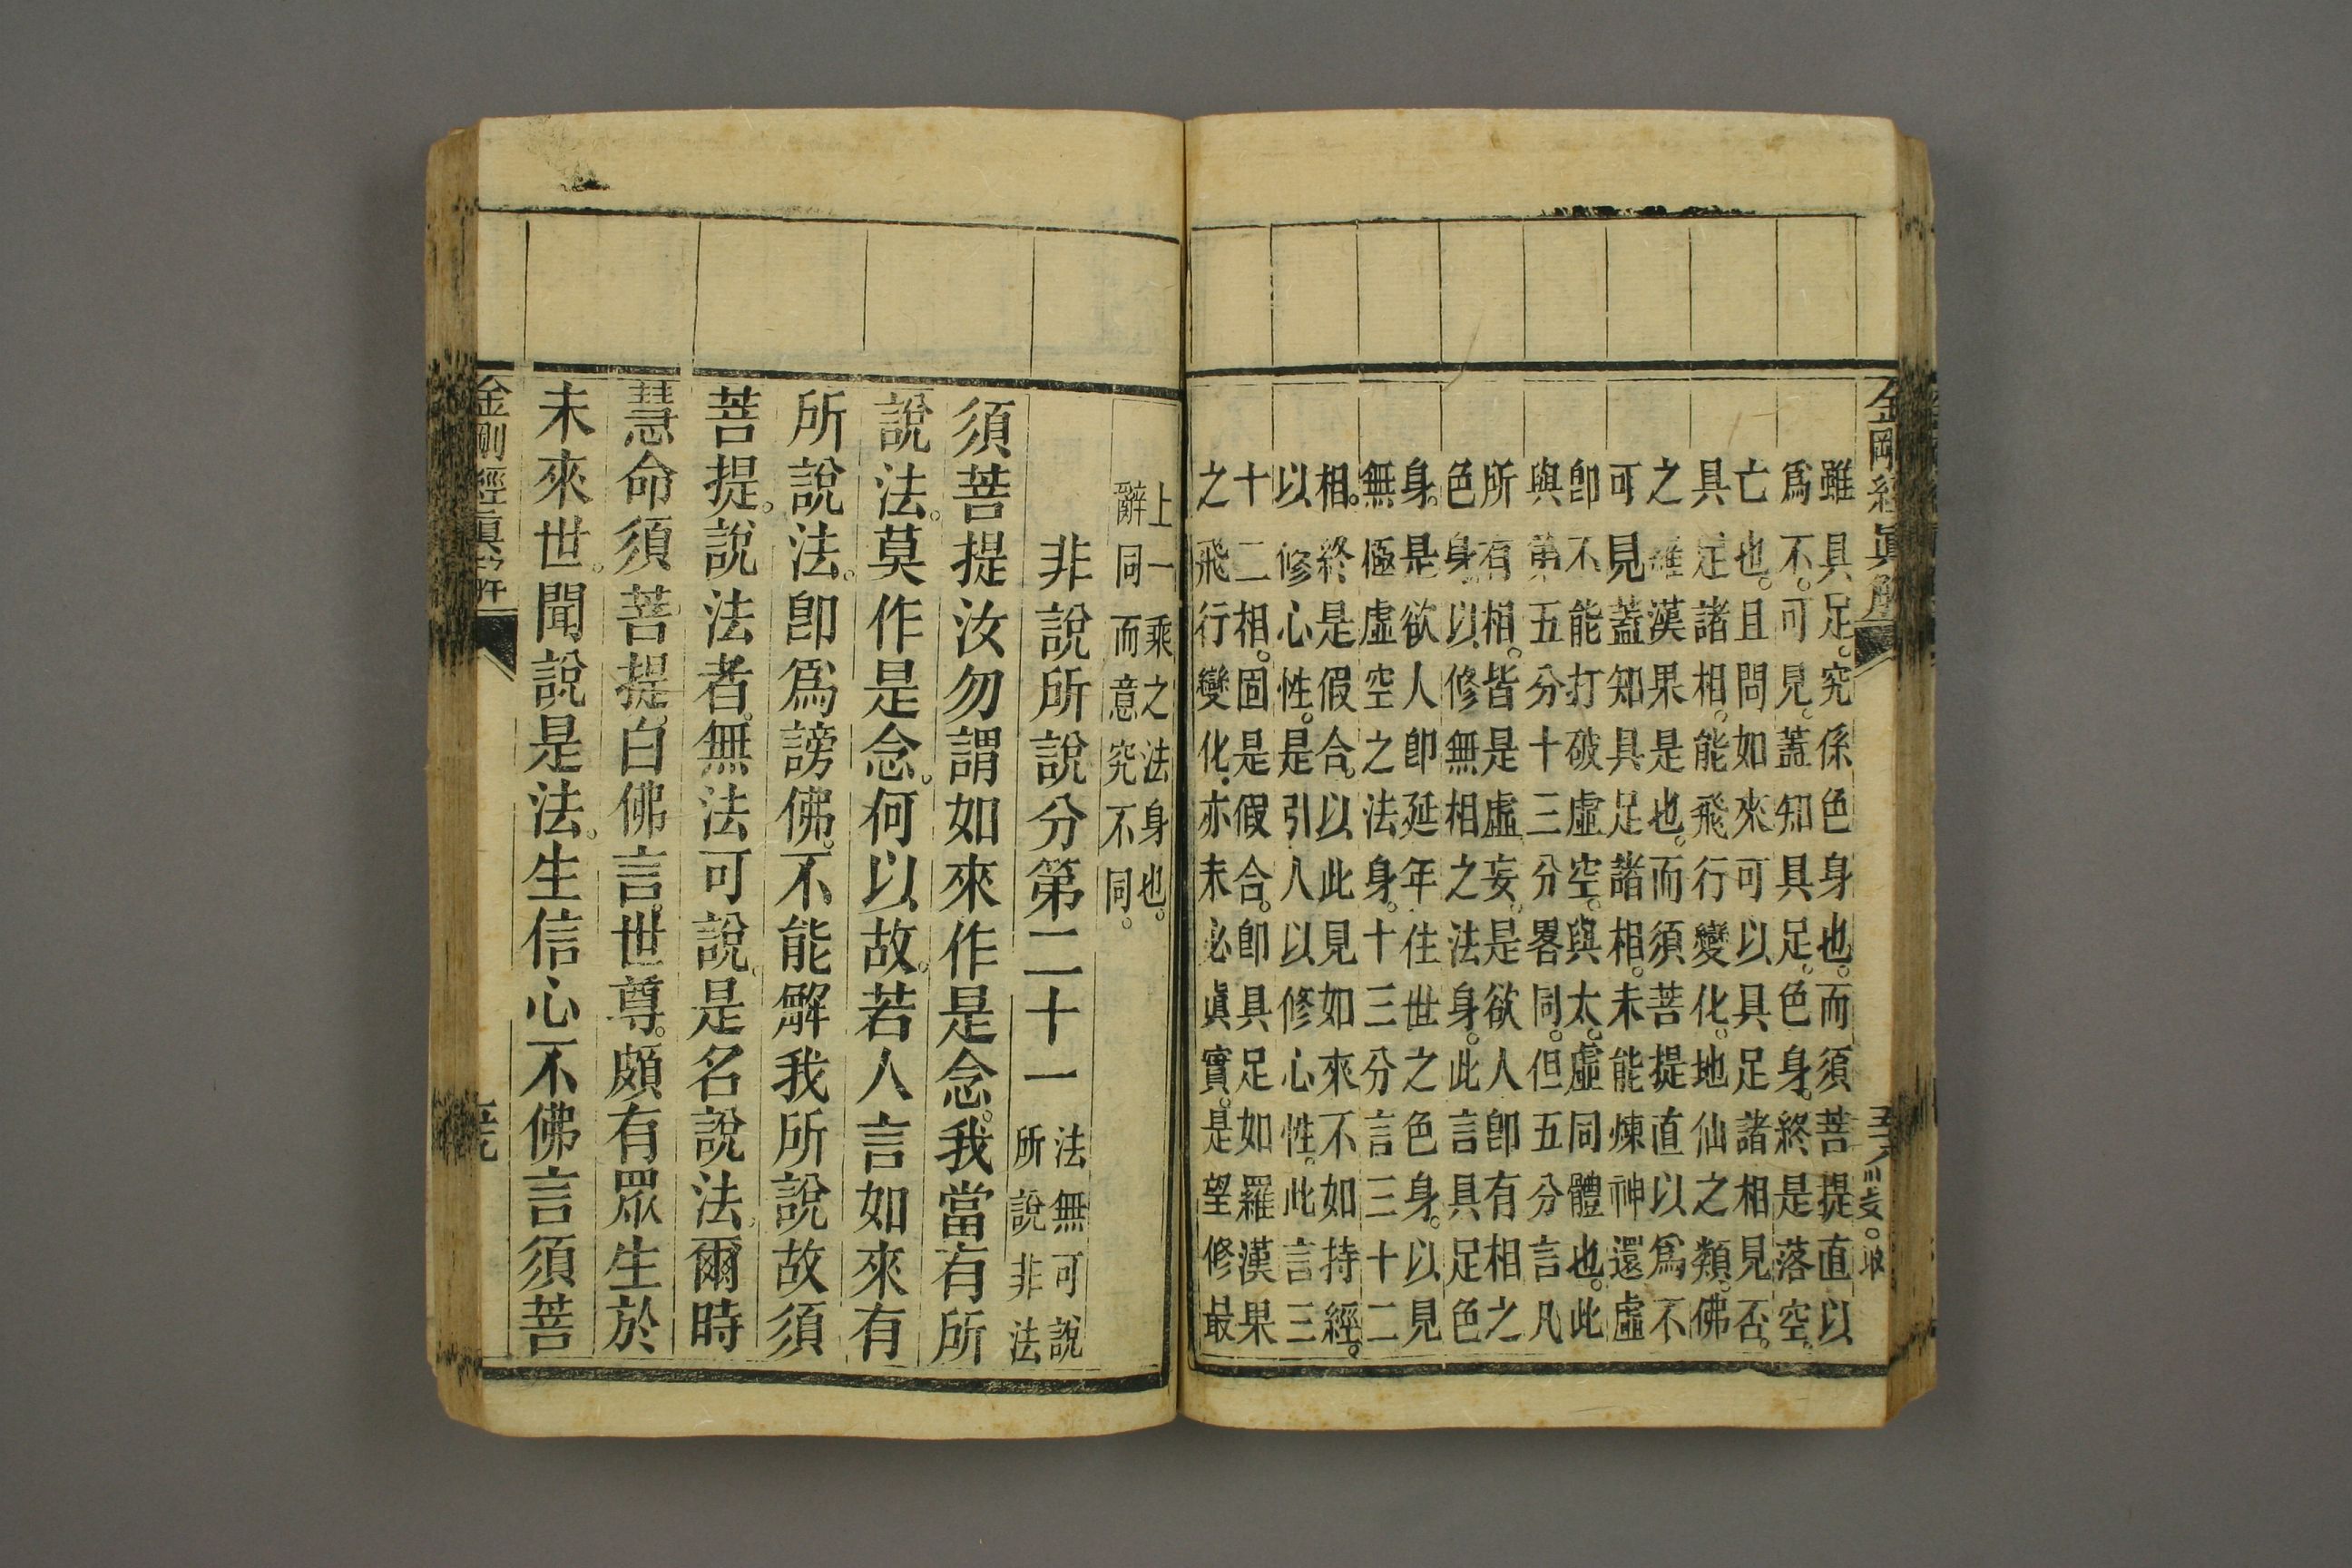 金剛經眞解
雖具足。究係色身也。而須菩提直以
爲不。可見。蓋知具足。色身。終是落空。
亡也。且問如來可以具足諸相見否。
具足諸相。能飛行變化。地仙之類。佛
之羅漢果是也。而須菩提直以爲不
可見蓋知具足諸相。未能煉神還虛
卽不能打破虛空。與太虛同體也。此
與第五分十三分畧同。但五分言凡
所有相。皆是虛妄。是欲人卽有相之
色身。以修無相之法身。此言具足色
身。是欲人卽延年住世之色身。以見
無極虛空之法身。十三分言三十二
相。終是假合。以此見如來不如持經。
以修心性。是引人以修心性。此言三
十二相。固是假合。卽具足如羅漢果
之飛行變化。亦未必眞實。是望修最
上一乘之法身也。
辭同而意究不同。
非說所說分第二十一 法無可說
所說非法
須菩提汝勿謂如來作是念。我當有所
說法。莫作是念。何以故。若人言如來有
所說法。卽爲謗佛。不能解我所說故須
菩提。說法者。無法可說。是名說法。爾時
慧命須菩提。白佛言。世尊。頗有眾生於
未來世。聞說是法。生信心不佛言須菩
金剛經眞解